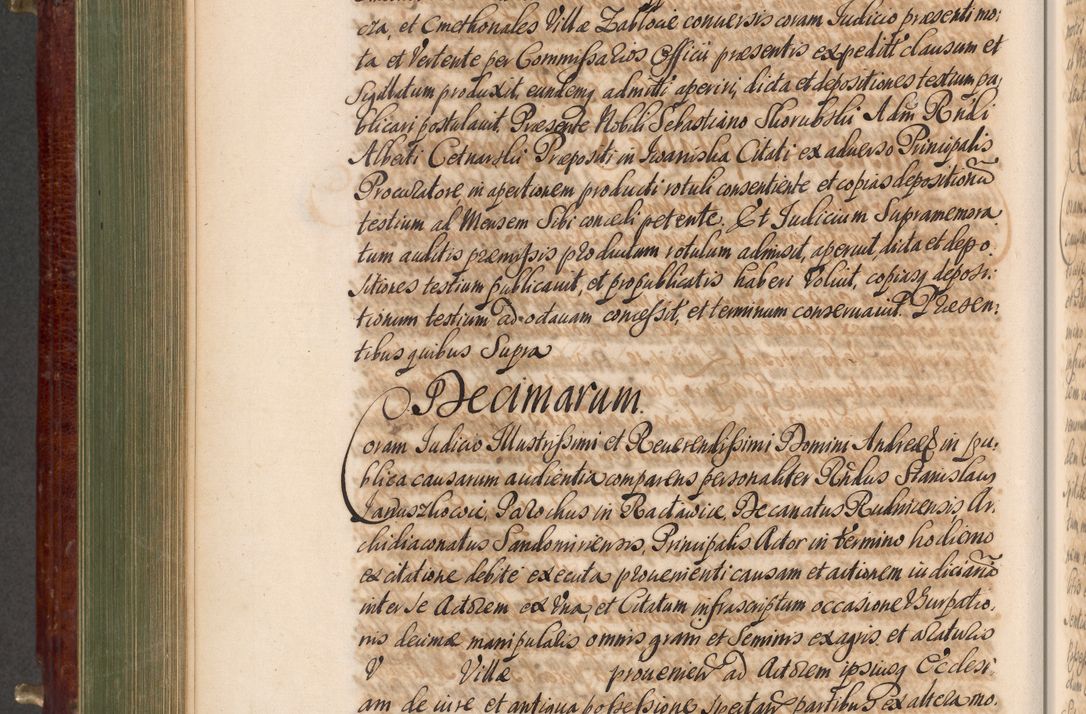 cza, et Cmethonales Villæ Zablocie conuersis coram Iudicio præsenti mo:
ta et Vertente per Commissarios Officii præsentis expediti clausum et
Sigillatum produxit, eundemq admitti aperiri, dicta et depositiones testium pu
blicari postulauit, Præsente Nobili Sebastiano Skorubski Adm Rndi
Alberti Cetnarski Præpositi in Iwaniska Citati ex aduerso Principalis
Procuratore, in apertionem producti rotuli consentiente et copias depositionũ
testium ad Mensem Sibi concedi petente. Et Iudicium Supramemora
tum auditis præmissis productum rotulum admisit, aperuit, dicta et depo
sitiones testium publicauit, et pro publicatis haberi Voluit, copiasq deposi:
tionum testium ad octauam concessit, et terminum conseruauit. Præsen:
tibus quibus Supra
Decimarum.
Coram Iudicio Illustrissimi et Reuerendissimi Domini Andreæ in pu:
blica causarum audientia comparens personaliter Rndus Stanislaus
Januszkowic, Parochus in Racławice, Decanatus Rudnicensis Ar:
chidiaconatus Sandomiriensis, Principalis Actor in termino hodierno
ex citatione debite executa proueniente causam et actionem iudiciariã
inter Se Actorem ex Vna, et Citatum infrascriptum occasione Vsurpatio:
nis decimæ manipularis omnis grani et Seminis ex agris et araturis
V Villæ prouenien ad Actorem ipsiusq Ecclesi:
am de iure et antiqua possessione spectan partibus ex altera mo: